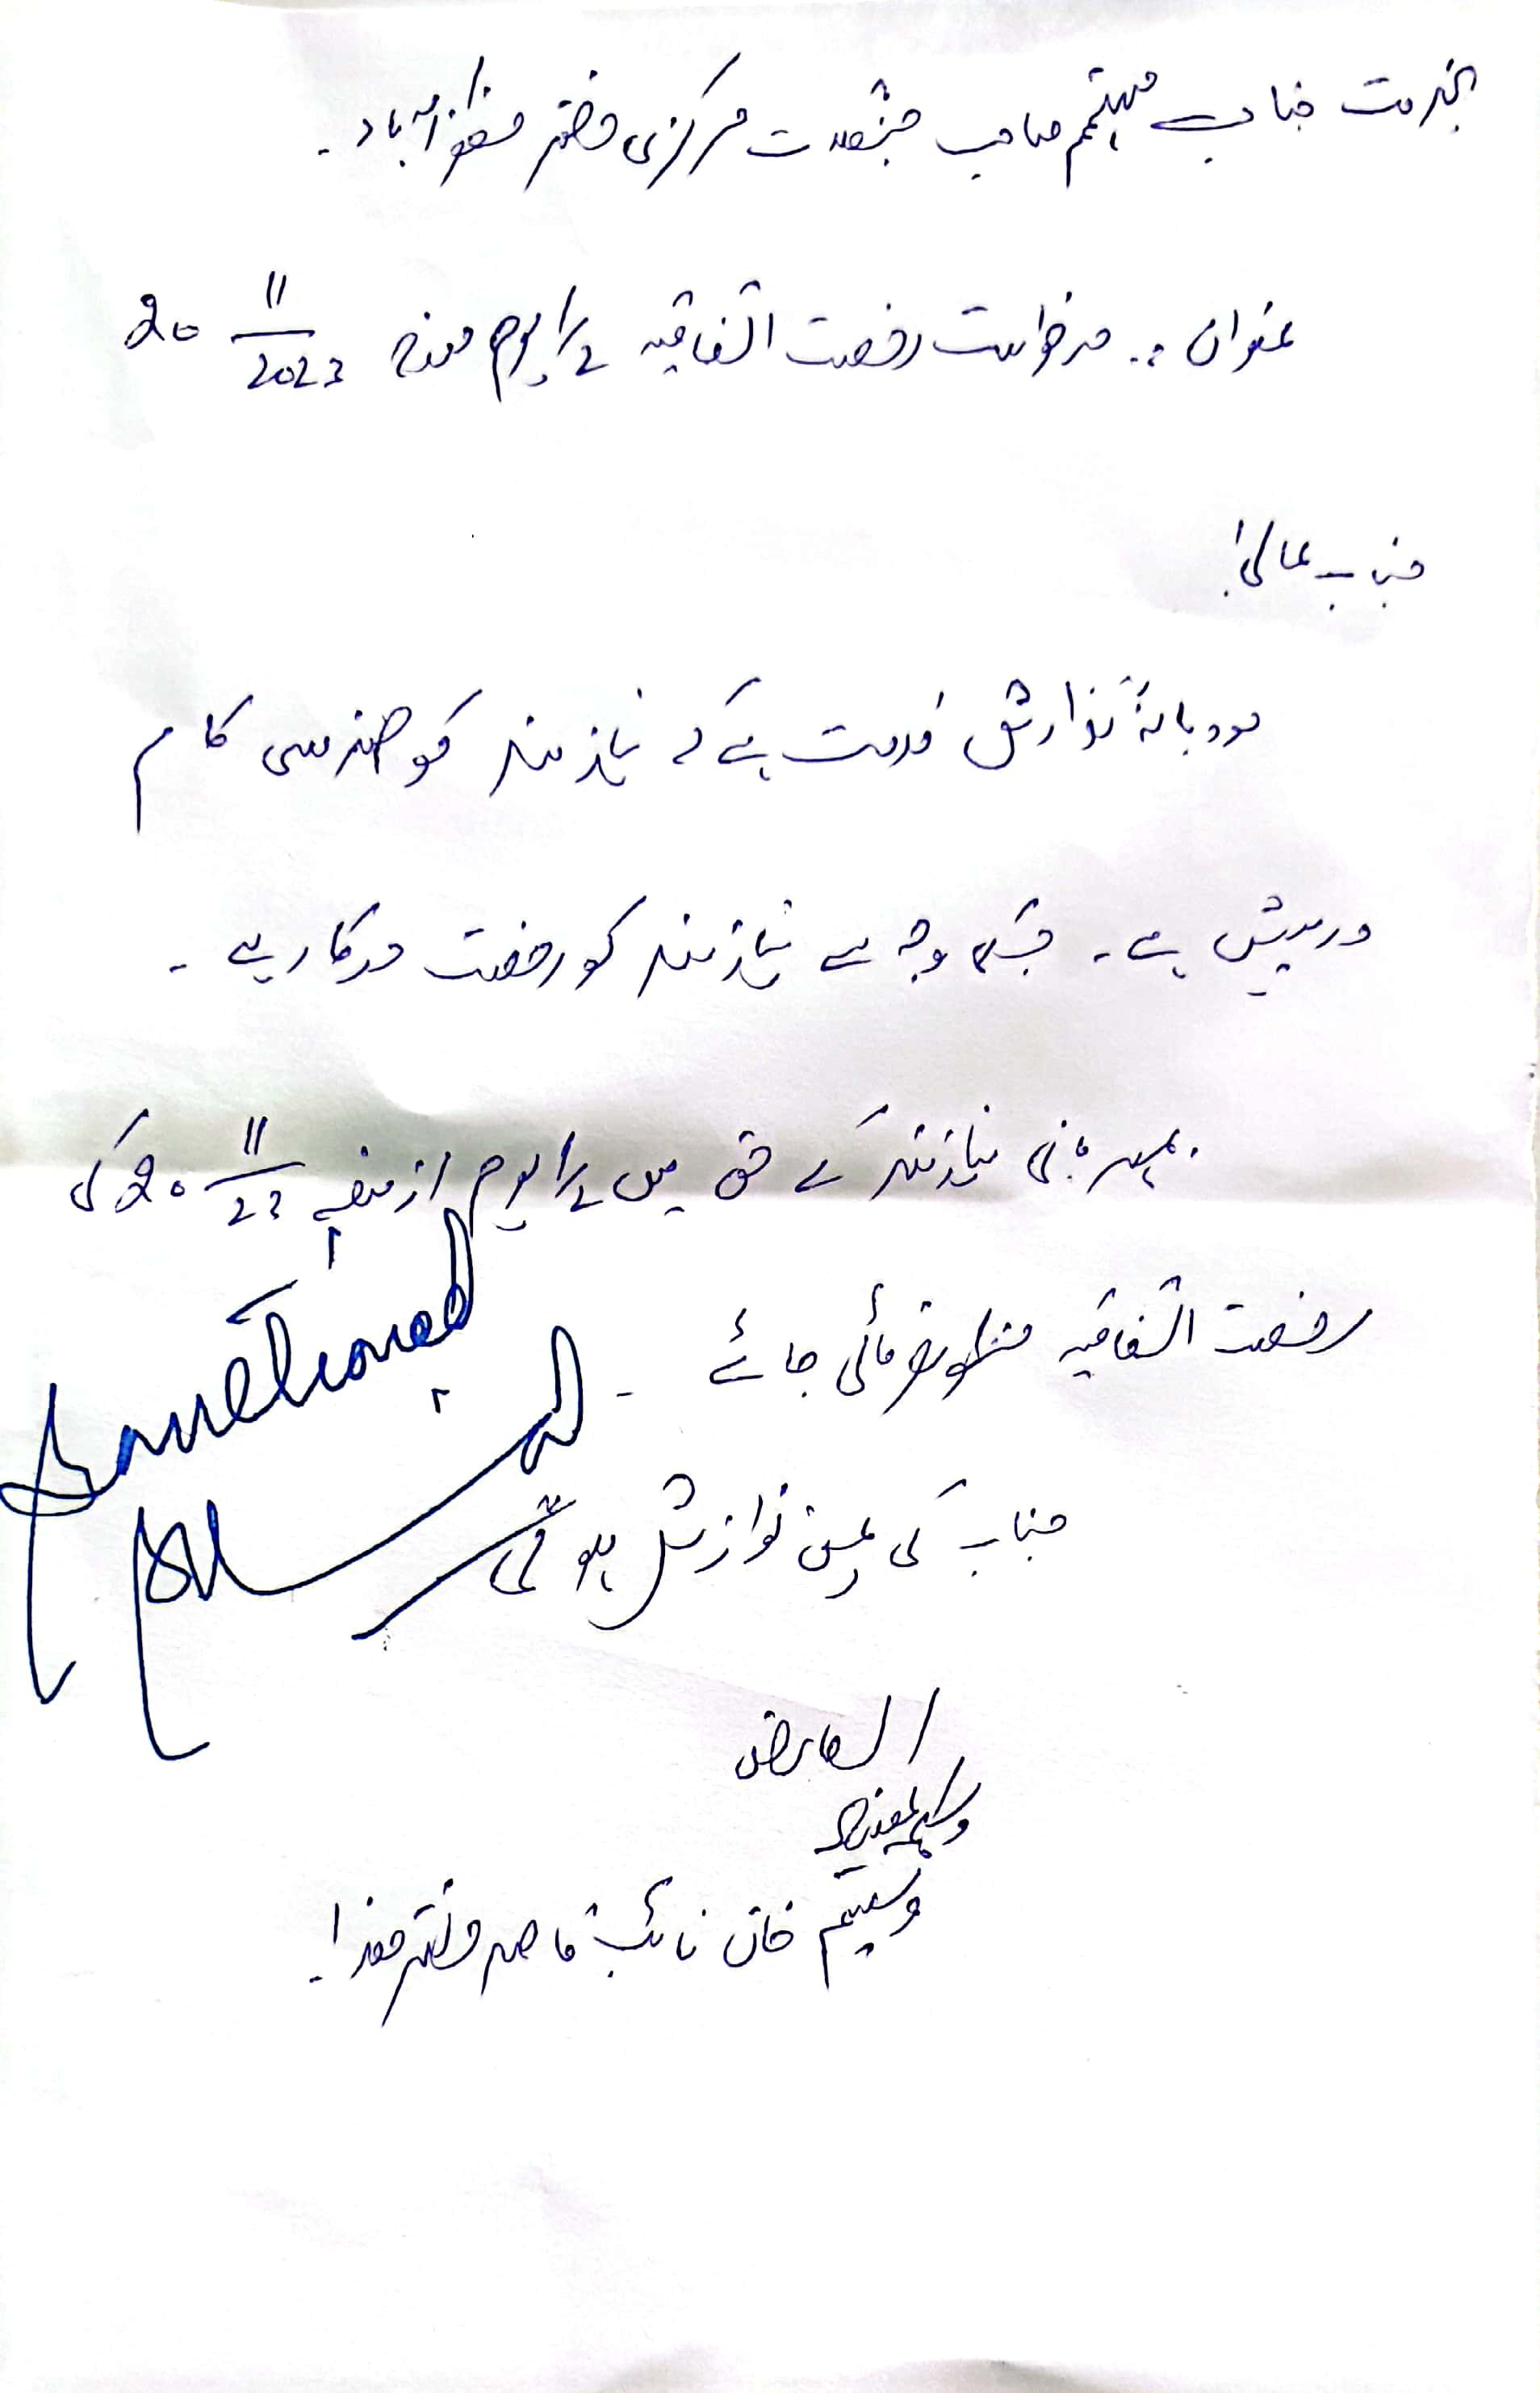 بخدمت جناب مہتمم صاحب مرکزی دفتر مظفرآباد۔
عنوان :۔ درخواست رخصت اتفاقیہ 1/ یوم مورخہ 20 11/2023
جناب عالی!
مودبانہ گذارش خدمت ہیکہ نیازمند کو ضروری کام
درپیش ہے۔ جسکی وجہ سے نیازمند کو رخصت درکار ہے۔
بمہربانی نیازمند کے حق میں 1/ یوم از مورخہ 20 11/23 کی
رخصت اتفاقیہ منظور فرمائی جائے۔
Sanctioned
جناب کی عین نوازش ہو گی
العارض
وسیم خان نائب قاصد دفتر ھذا!